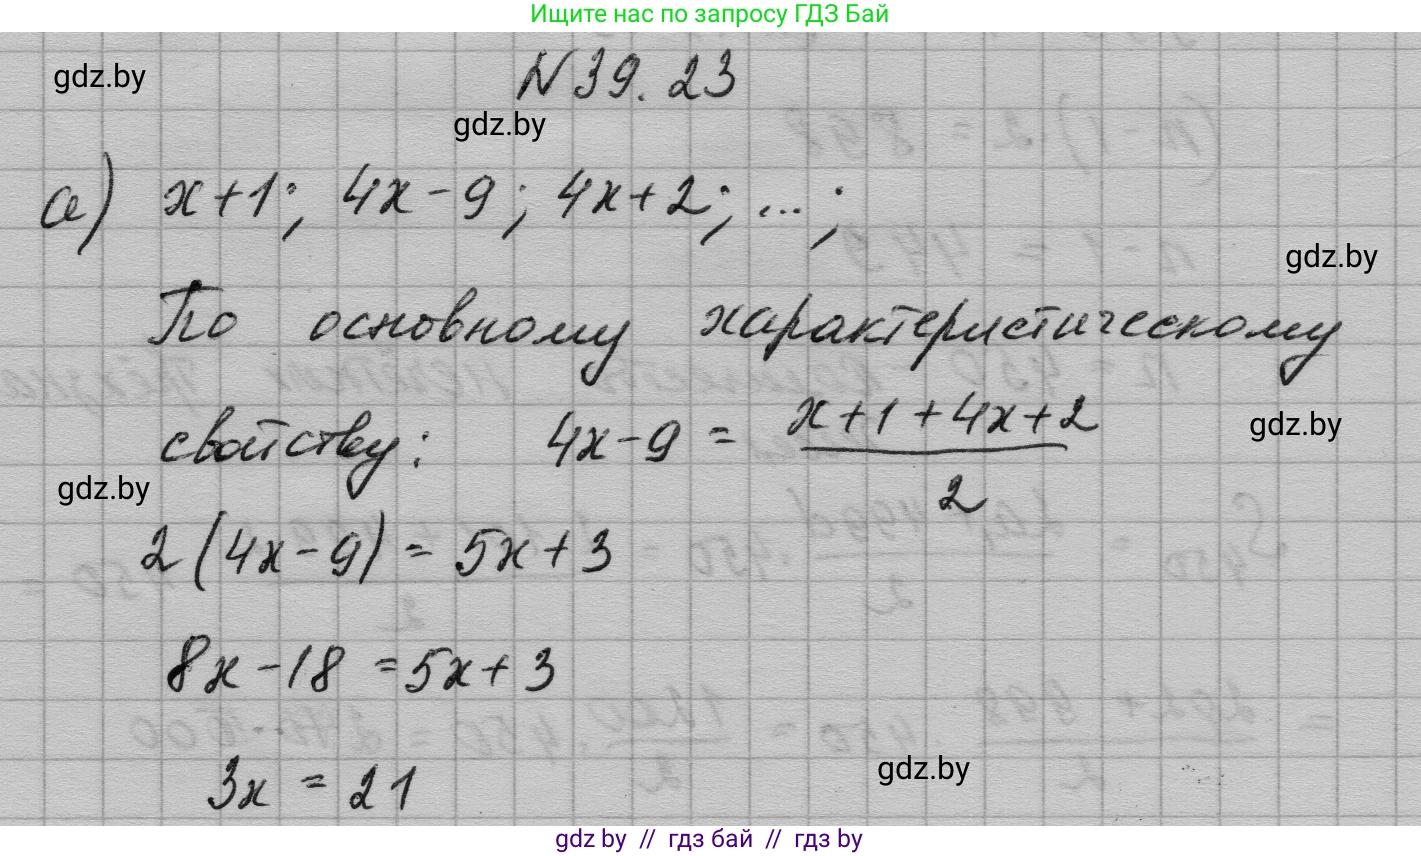 Ищите нас по запросу ГДЗ Бай
gdz.by
N 39.23
gdz.by
а) x+1; 4x-9; 4x+2; ...;
gdz.by
По основному характеристическому
свойству: 4x-9 = \frac{x+1+4x+2}{2}
gdz.by
gdz.by
2(4x-9) = 5x+3
8x-18 = 5x+3
gdz.by
3x = 21
gdz by // гдз бай // гдз by